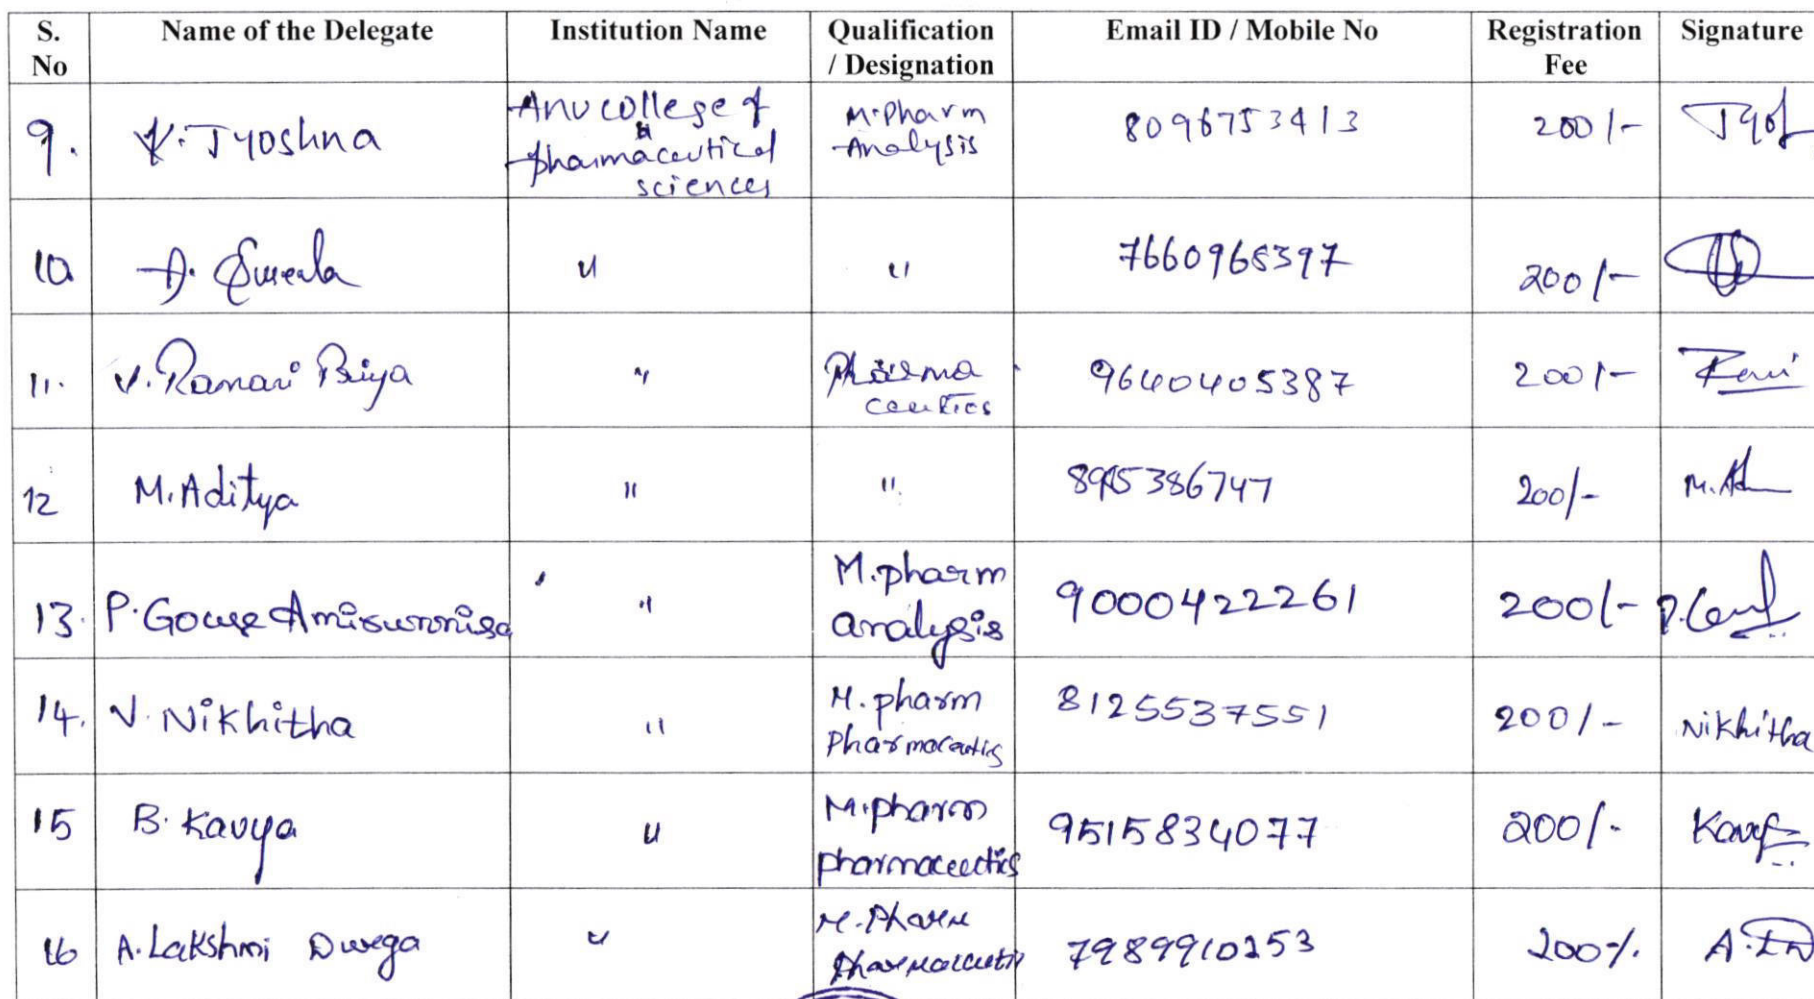 S. No Name of the Delegate Institution Name Qualification / Designation Email ID / Mobile No Registration Fee Signature
9. K. Jyoshna Anu college of pharmaceutical sciences M. Pharm Analysis 8096753413 200/- Jyo
10 A. " " 7660965397 200/-
11. V. Ramani Priya " Pharma ceutics 9640405387 200/-
12 M. Aditya " " 200/- M.
13. P. Gouse Amisunnisa " M. pharm analysis 9000422261 200/- P.
14. V. Nikhitha " M. pharm Pharmaceutics 8125537551 200/- Nikhitha
15 B. Kavya " M. pharm pharmaceutics 9515834077 200/-
16 A. Lakshmi Durga " M. Pharm 7989910253 200/- A.